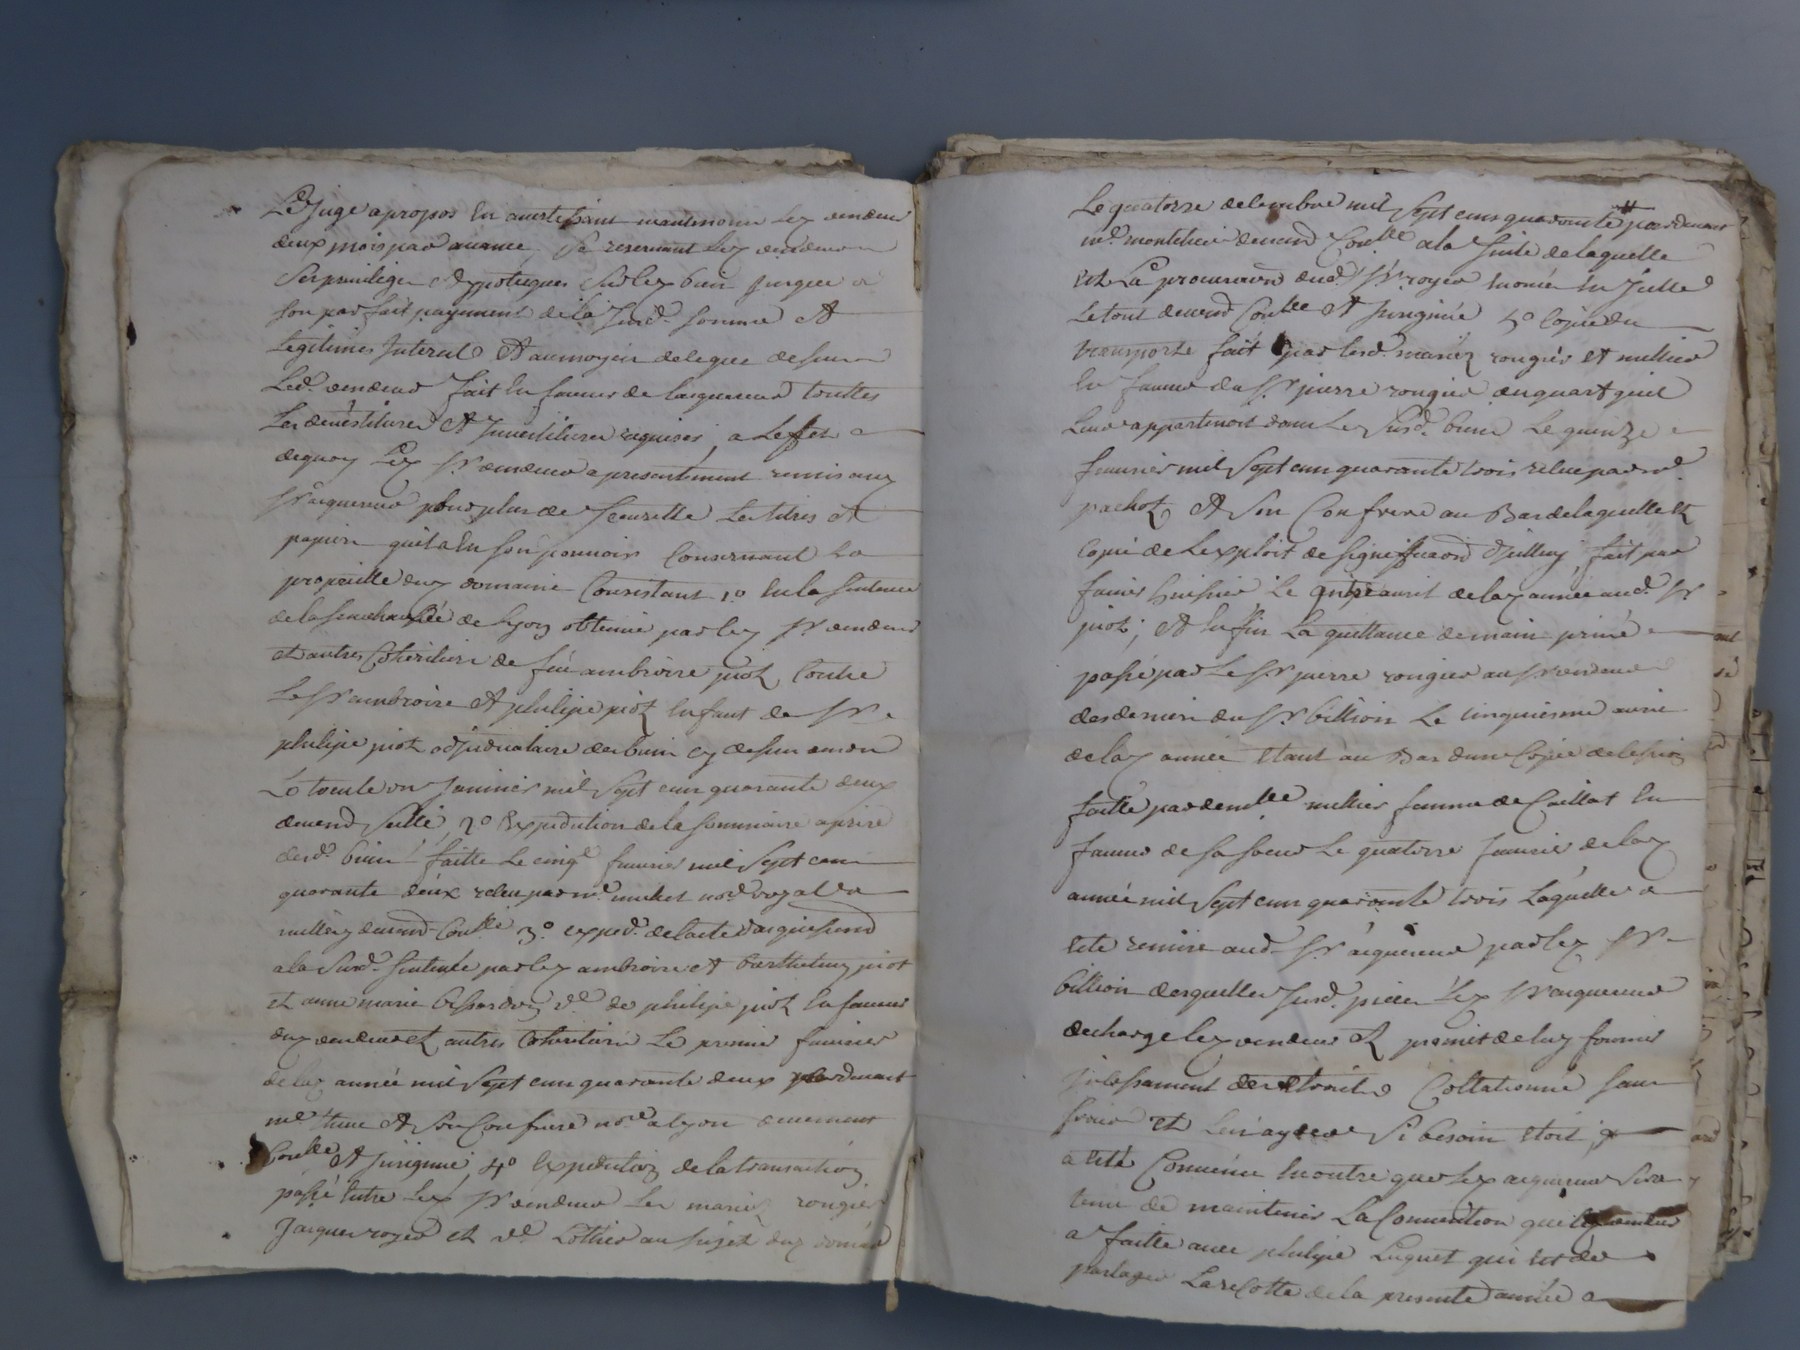 Le Juge apropos En avertissant maintenour Ley vendeur
deux mois par avance, Se reservant Ley vendeur
Ses privileges & Hypoteques Sur Ley bien jusques a
son parfait payement de la Susd. somme Et
Legitimes Interest Et au moyen de ce que dessus
Led. vendeur fait En faveur de Lacquereur touttes
Les demestitures Et Investitures requises, a Leffet
dequoy Ley Sr vendeur a presentement remis auy
Sr acquereur pour plus de Seurette Les titres Et
papiers quil a En son pouvoir Concernant La
propriette duy domaine Consistant 1o En la sentence
de la Senechaussée de Lyon obtenue par Ley Sr vendeur
et autres Coheritiers de feu ambroise piot Contre
Le Sr ambroise Et philipe piot Enfant de Sr
philipe piot adjudicataire des bien cy dessus
Le trente un Janvier mil Sept cens quarante deux
Seellé, 2o Expedition de la Sommaire aprise
desd. bien faitte Le cinqe fevrier mil Sept cens
quarante deux par me nore royal a
Conllé 3o exped. de lacte dacquiesmt
a la Susd. Sentence par Ley ambroise Et barthelemy piot
et anne marie ve de philipe piot En faveur
duy vendeur et autres Coheritiers Le premier fevrier
de lay année mil Sept cens quarante deux pardevant
me Et Son Confrere nore a Lyon
Conllé Et Insignué, 4o Expedition de la transaction
passé Entre Ley Sr vendeur Les mariez rougier
Jacques royer et ve Lottier au Sujet duy domaine
Le quatorze decembre mil Sept cens quarante pardevant
me Conllé a la Suite de laquelle
est La procuration dud. Sr royer
Le tout Conllé Et Insignué 5o Copie du
transport fait par lesd. mariez rougier et millier
En faveur du Sr pierre rougier du quart quil
Leur appartenoit dans Le Susd. bien Le quinze
fevrier mil Sept cens quarante trois reçue par me
pachot Et Son Confrere au Bas de laquelle est
Copie de Lexploit de Signiffication dicelluy, fait par
huissier Le avril de lay année aud. Sr
piot; Et Enfin La quittance de main privé
passé par Le Sr pierre rougier au Sr vendeur
des deniers du Sr billion Le cinquiesme avril
de lay année Etant au Bas dune Copie de
faitte par demlle millier femme de Caillat En
faveur de sa soeur Le quatorze Janvier de lay
année mil Sept cens quarante trois Laquelle a
Eté remise aud. Sr acquereur par Ley Sr
billion desquelles Susd. pieces Ley Sr acquereur
decharge Ley vendeur Et promet de luy fournir
Collationné sans
frais et Luy aydera Si besoin Etoit,
a Eté Convenu En outre que Ley acquereur Sera
tenu de maintenir La Convention que Ley vendeur
a faitte avec philipe Luquet qui est de
partager La recolte de la presente année a